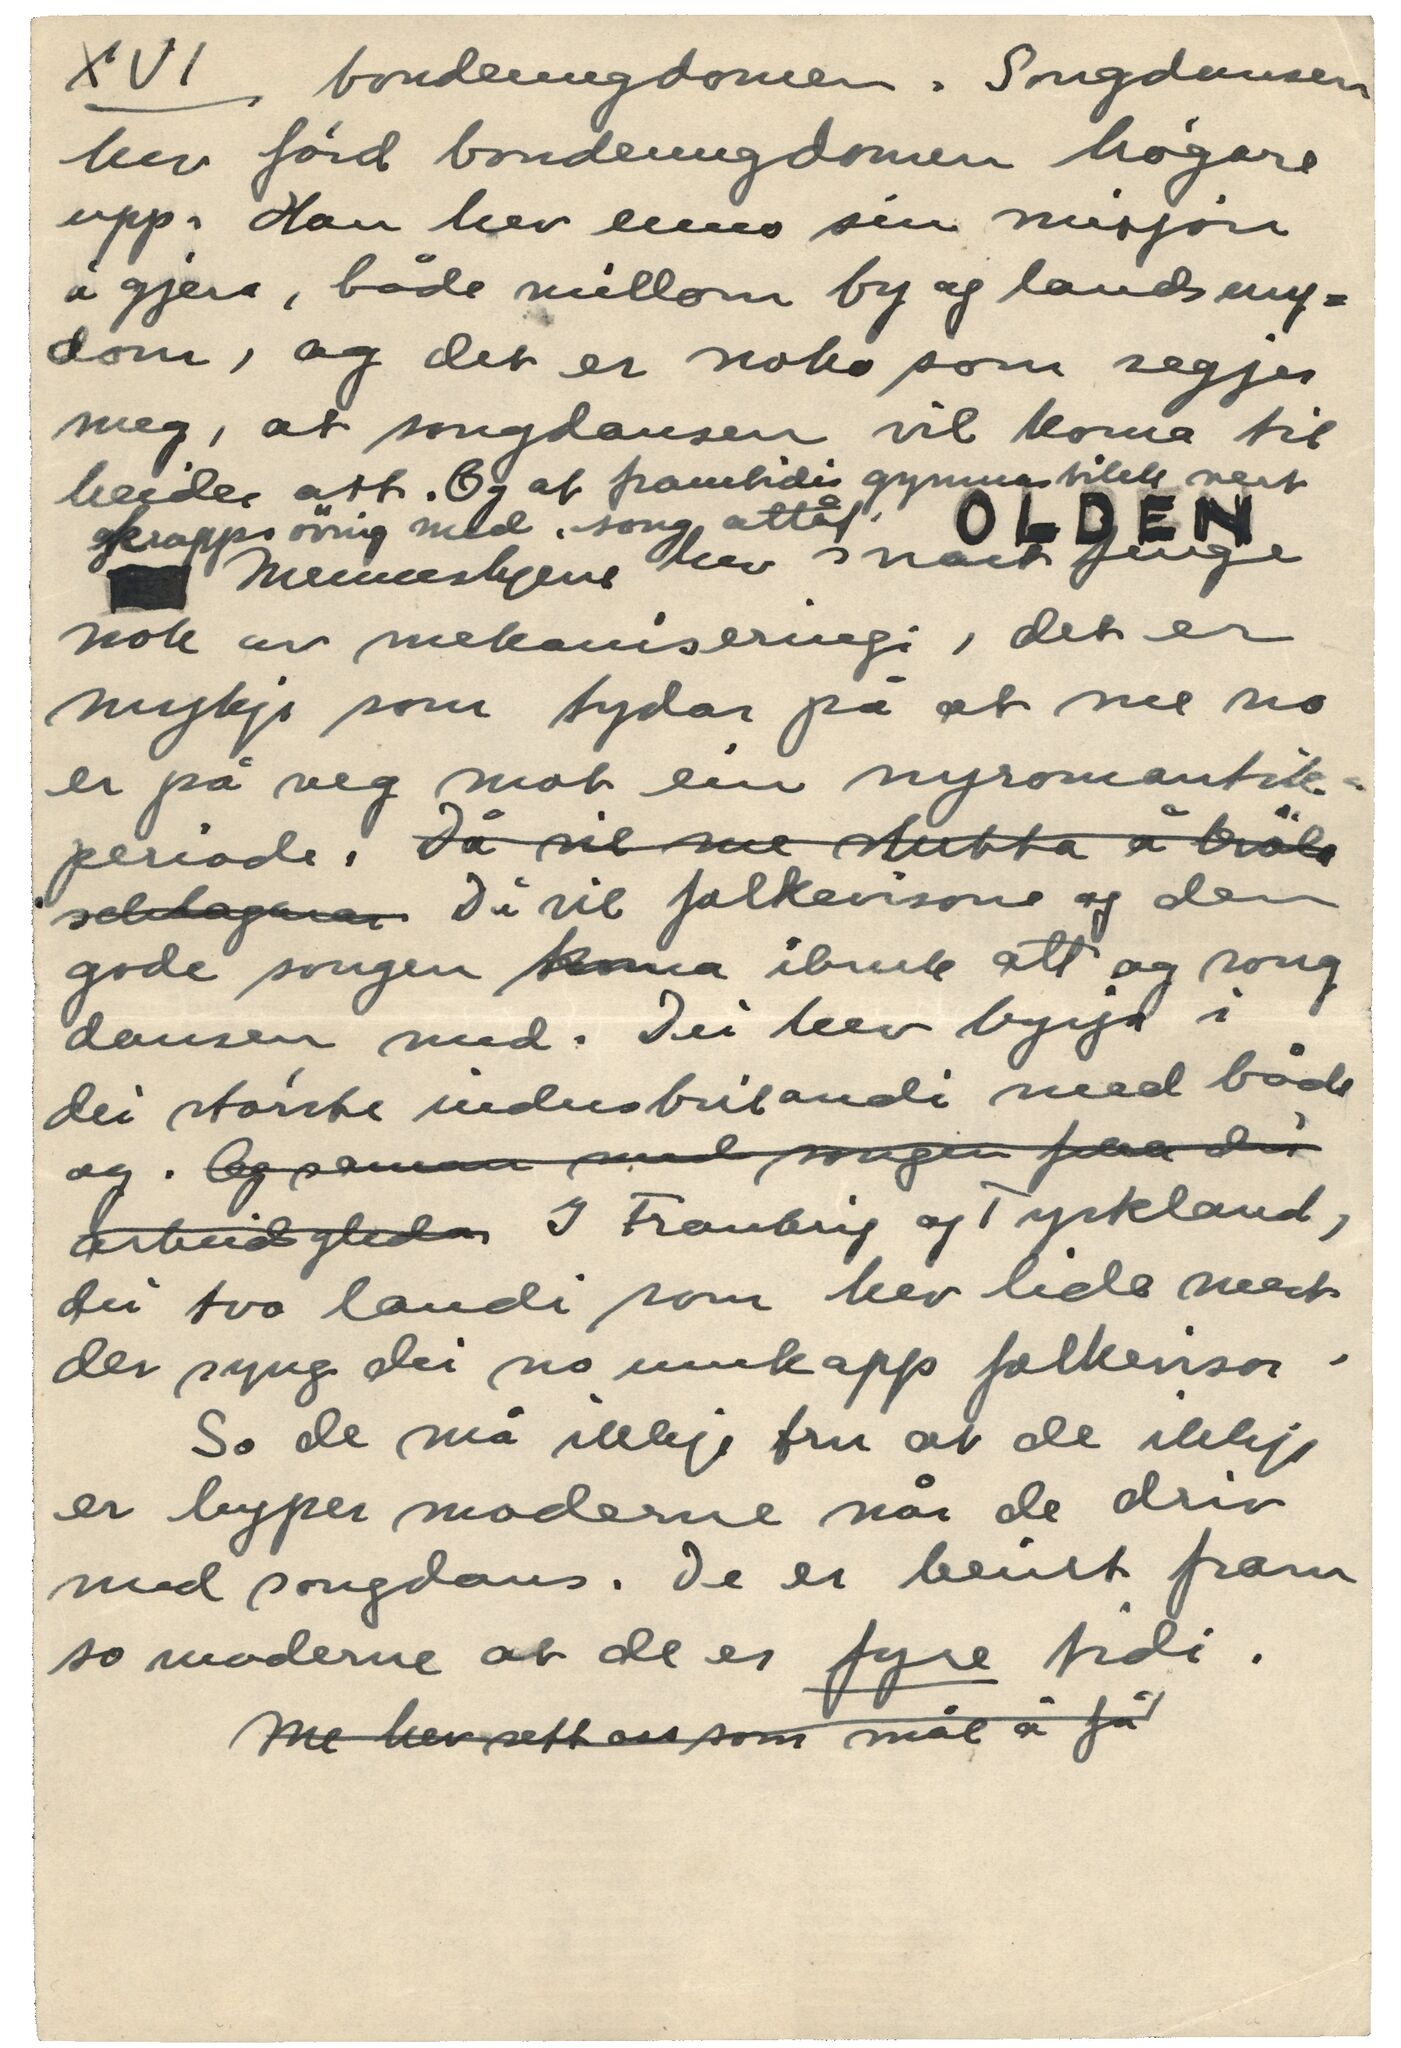 XVI bondeungdomen. Songdansen
hev förd bondeungdomen högare
upp. Han hev enno sin misjon
å gjera, både millom by og landsung-
dom, og det er noko som segjer
meg, at songdansen vil koma til
heider att. Og at framtidis gymnastikk vert
kroppsöving med song attåt. OLDEN
Menneskjene hev snart fenge
nok av mekaniseringi, det er
mykje som tydar på at me no
er på veg mot ein nyromantikk-
periode. Då vil me slutta å bröla
schlagarar Då vil folkevisone og den
gode songen koma ibruk att og song
dansen med. Dei hev byrja i
dei störste industrilandi med både
og. Og saman med songen fara dei
arbeidsgleda. I Frankrig og Tyskland,
dei tvo landi som hev lide mest
der syng dei no umkapp folkevisor.
So de må ikkje tru at de ikkje
er hyper moderne når de driv
med songdans. De er beint fram
so moderne at de er fyre tidi.
Me hev sett oss som mål å få